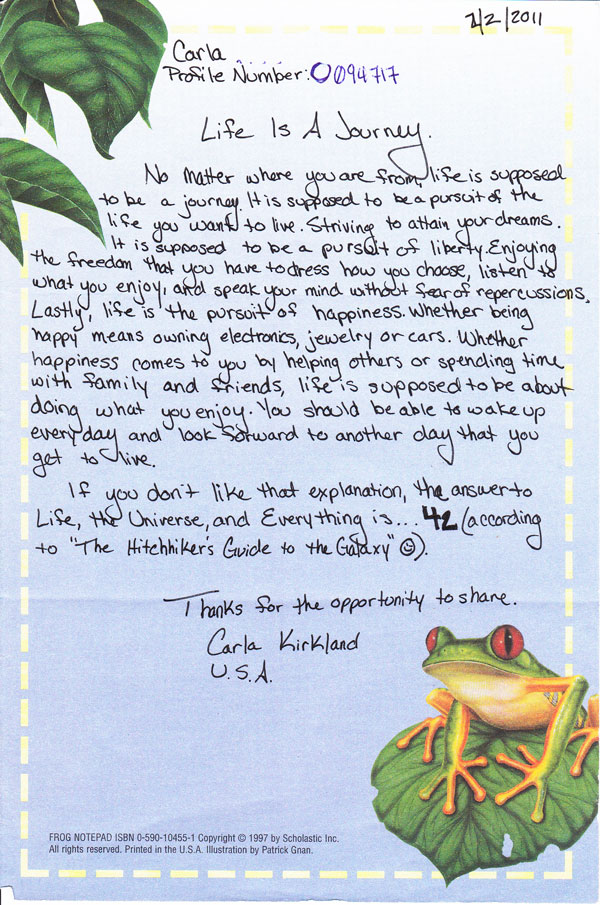 2/2/2011
Carla
Profile Number: 0094717
Life Is A Journey.
No matter where you are from, life is supposed
to be a journey. It is supposed to be a pursuit of the
life you want to live. Striving to attain your dreams.
It is supposed to be a pursuit of liberty. Enjoying
the freedom that you have to dress how you choose, listen to
what you enjoy, and speak your mind without fear of repercussions.
Lastly, life is the pursuit of happiness. Whether being
happy means owning electronics, jewelry or cars. Whether
happiness comes to you by helping others or spending time
with family and friends, life is supposed to be about
doing what you enjoy. You should be able to wake up
every day and look forward to another day that you
get to live.
If you don't like that explanation, the answer to
Life, the Universe, and Everything is... 42 (according
to "The Hitchhiker's Guide to the Galaxy" ☺).
Thanks for the opportunity to share.
Carla Kirkland
U.S.A.
FROG NOTEPAD ISBN 0-590-10455-1 Copyright © 1997 by Scholastic Inc.
All rights reserved. Printed in the U.S.A. Illustration by Patrick Gnan.